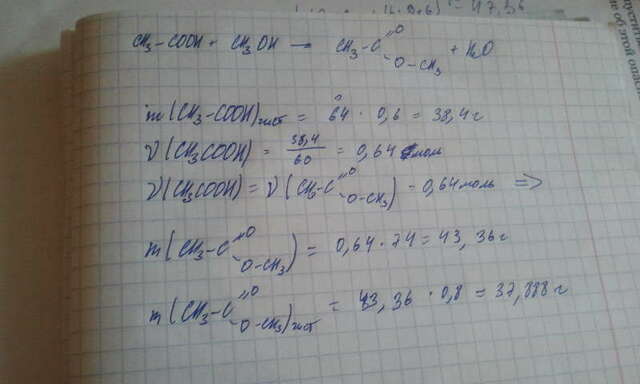 = 47,36
CH₃-COOH + CH₃OH → CH₃-C=O O-CH₃ + H₂O
m(CH₃-COOH)чист = 64 · 0,6 = 38,4 г
ν(CH₃COOH) = 38,4/60 = 0,64 моль
ν(CH₃COOH) = ν(CH₃-C=O O-CH₃) - 0,64 моль =>
m(CH₃-C=O O-CH₃) = 0,64 · 74 = 43,36 г
m(CH₃-C=O O-CH₃)чист = 43,36 · 0,8 = 37,888 г